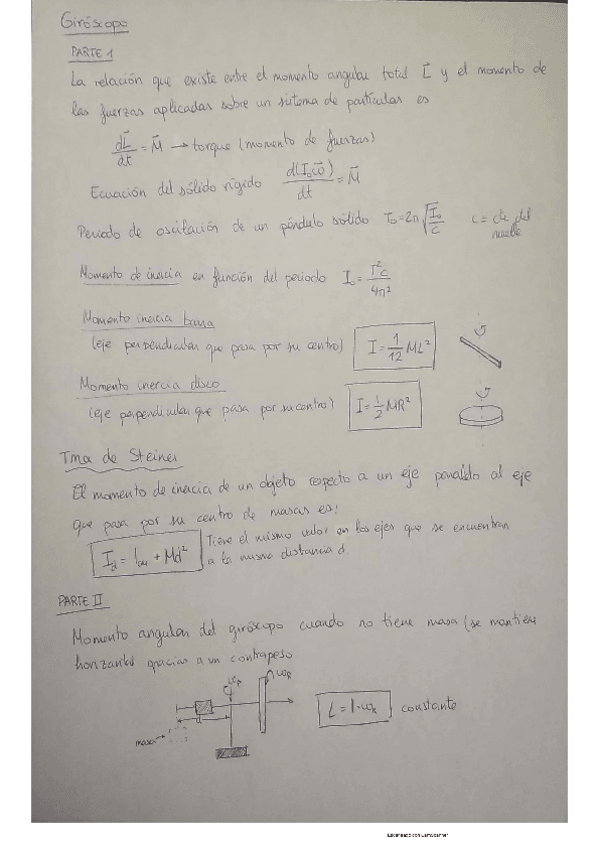 Giróscopo
PARTE 1
La relación que existe entre el momento angular total L⃗ y el momento de
las fuerzas aplicadas sobre un sistema de partículas es
dL⃗/dt = M⃗ → torque (momento de fuerzas)
Ecuación del sólido rígido d(I₀ω⃗)/dt = M⃗
Periodo de oscilación de un péndulo sólido T₀=2π√(I₀/c) c = cte del
muelle
Momento de inercia en función del periodo I₀ = T²c/4π²
Momento inercia barra
(eje perpendicular que pasa por su centro) I = 1/12 ML²
Momento inercia disco
(eje perpendicular que pasa por su centro) I = 1/2 MR²
Tma de Steiner
El momento de inercia de un objeto respecto a un eje paralelo al eje
que pasa por su centro de masas es:
I_d = I_CM + Md² Tiene el mismo valor en los ejes que se encuentran
a la misma distancia d.
PARTE II
Momento angular del giróscopo cuando no tiene masa (se mantiene
horizontal gracias a un contrapeso
ω_P ω_R
L = I·ω_R constante
masa
Escaneado con CamScanner